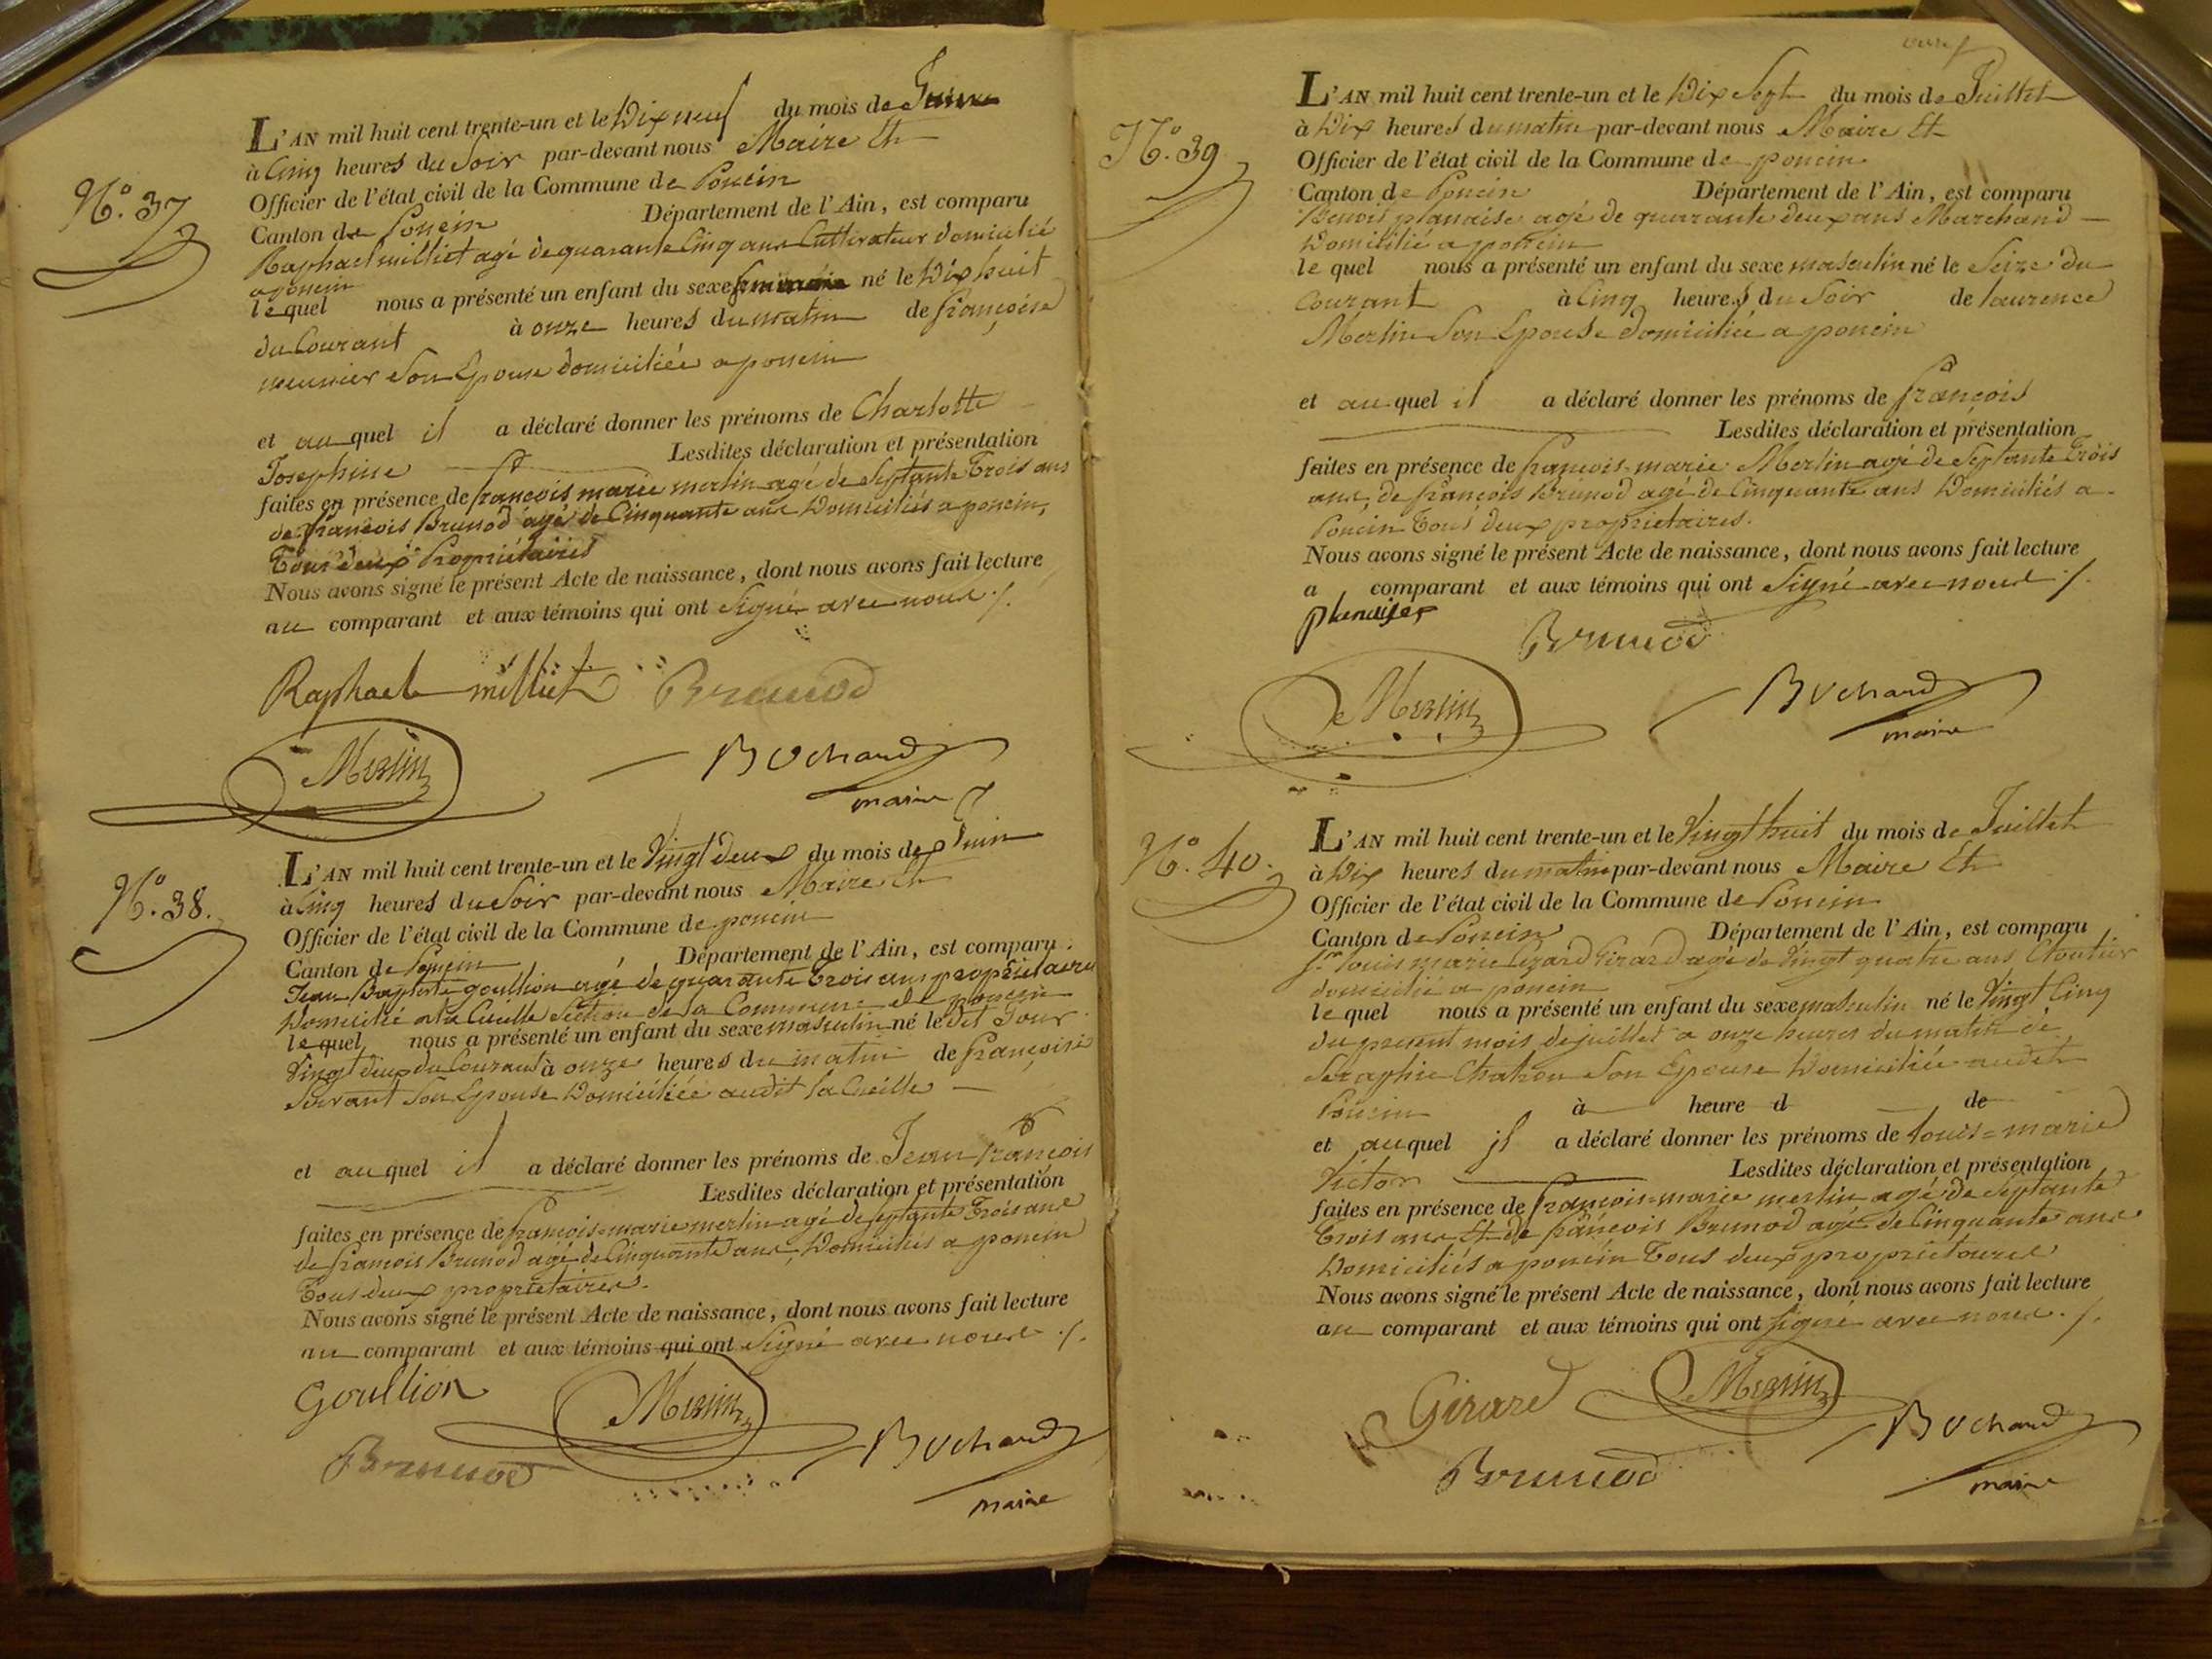 N.º 37
L'AN mil huit cent trente-un et le Dix neuf du mois de Juin
à Cinq heures du Soir par-devant nous Maire Et
Officier de l'état civil de la Commune de Poncin
Canton de Poncin Département de l'Ain, est comparu
Raphael milliet agé de quarante Cinq ans Cultivateur domicilié
a poncin
le quel nous a présenté un enfant du sexe né le Dix huit
du Courant à onze heures du matin de françoise
meunier Son Epouse domiciliée a poncin
et au quel il a déclaré donner les prénoms de Charlotte
Josephine Lesdites déclaration et présentation
faites en présence de françois marie merlin agé de Septante Trois ans
de françois Brunod agé de Cinquante ans Domiciliés a poncin,
Tous deux Propriétaires
Nous avons signé le présent Acte de naissance, dont nous avons fait lecture
au comparant et aux témoins qui ont Signé avec nous ./.
Raphael milliet Brunod
Merlin Bochard
maire
N.º 38.
L'AN mil huit cent trente-un et le Vingt deux du mois de Juin
à Cinq heures du Soir par-devant nous Maire Et
Officier de l'état civil de la Commune de poncin
Canton de Poncin Département de l'Ain, est comparu
Jean Baptiste goullion agé de quarante trois ans propriétaire
Domicilié a la Cueille Section de la Commune de poncin
le quel nous a présenté un enfant du sexe masculin né le dit Jour
Vingt deux du Courant à onze heures du matin de françoise
Servant Son Epouse Domiciliée audit la Cueille
et au quel il a déclaré donner les prénoms de Jean françois
Lesdites déclaration et présentation
faites en présence de françois=marie merlin agé de septante Trois ans
de françois Brunod agé de Cinquante ans, Domiciliés a poncin
Tous deux propriétaires.
Nous avons signé le présent Acte de naissance, dont nous avons fait lecture
au comparant et aux témoins qui ont Signé avec nous ./.
Goullion Merlin Bochard
Brunod maire
N.º 39
L'AN mil huit cent trente-un et le Dix Sept du mois de Juillet
à Dix heures du matin par-devant nous Maire Et
Officier de l'état civil de la Commune de poncin
Canton de Poncin Département de l'Ain, est comparu
Benois planaise agé de quarante deux ans Marchand
Domicilié a poncin
le quel nous a présenté un enfant du sexe masculin né le Seize du
Courant à Cinq heures du Soir de laurence
Merlin Son Epouse Domiciliée a poncin
et au quel il a déclaré donner les prénoms de françois
Lesdites déclaration et présentation
faites en présence de françois-marie Merlin agé de Septante Trois
ans, de françois Brunod agé de Cinquante ans Domiciliés a
Poncin Tous deux propriétaires.
Nous avons signé le présent Acte de naissance, dont nous avons fait lecture
a comparant et aux témoins qui ont Signé avec nous ./.
Brunod
Merlin Bochard
maire
N.º 40.
L'AN mil huit cent trente-un et le Vingt huit du mois de Juillet
à Dix heures du matin par-devant nous Maire Et
Officier de l'état civil de la Commune de Poncin
Canton de Poncin Département de l'Ain, est comparu
Sr. louis marie Girard agé de Vingt quatre ans Cloutier
domicilié a poncin
le quel nous a présenté un enfant du sexe masculin né le Vingt Cinq
du present mois de juillet a onze heures du matin de
Seraphie Son Epouse Domiciliée audit
Poncin à heure d de
et au quel il a déclaré donner les prénoms de louis=marie
Victor Lesdites déclaration et présentation
faites en présence de françois=marie merlin agé de Septante
Trois ans Et de françois Brunod agé de Cinquante ans
Domiciliés a poncin Tous deux propriétaires
Nous avons signé le présent Acte de naissance, dont nous avons fait lecture
au comparant et aux témoins qui ont Signé avec nous ./.
Girard Merlin Bochard
Brunod maire